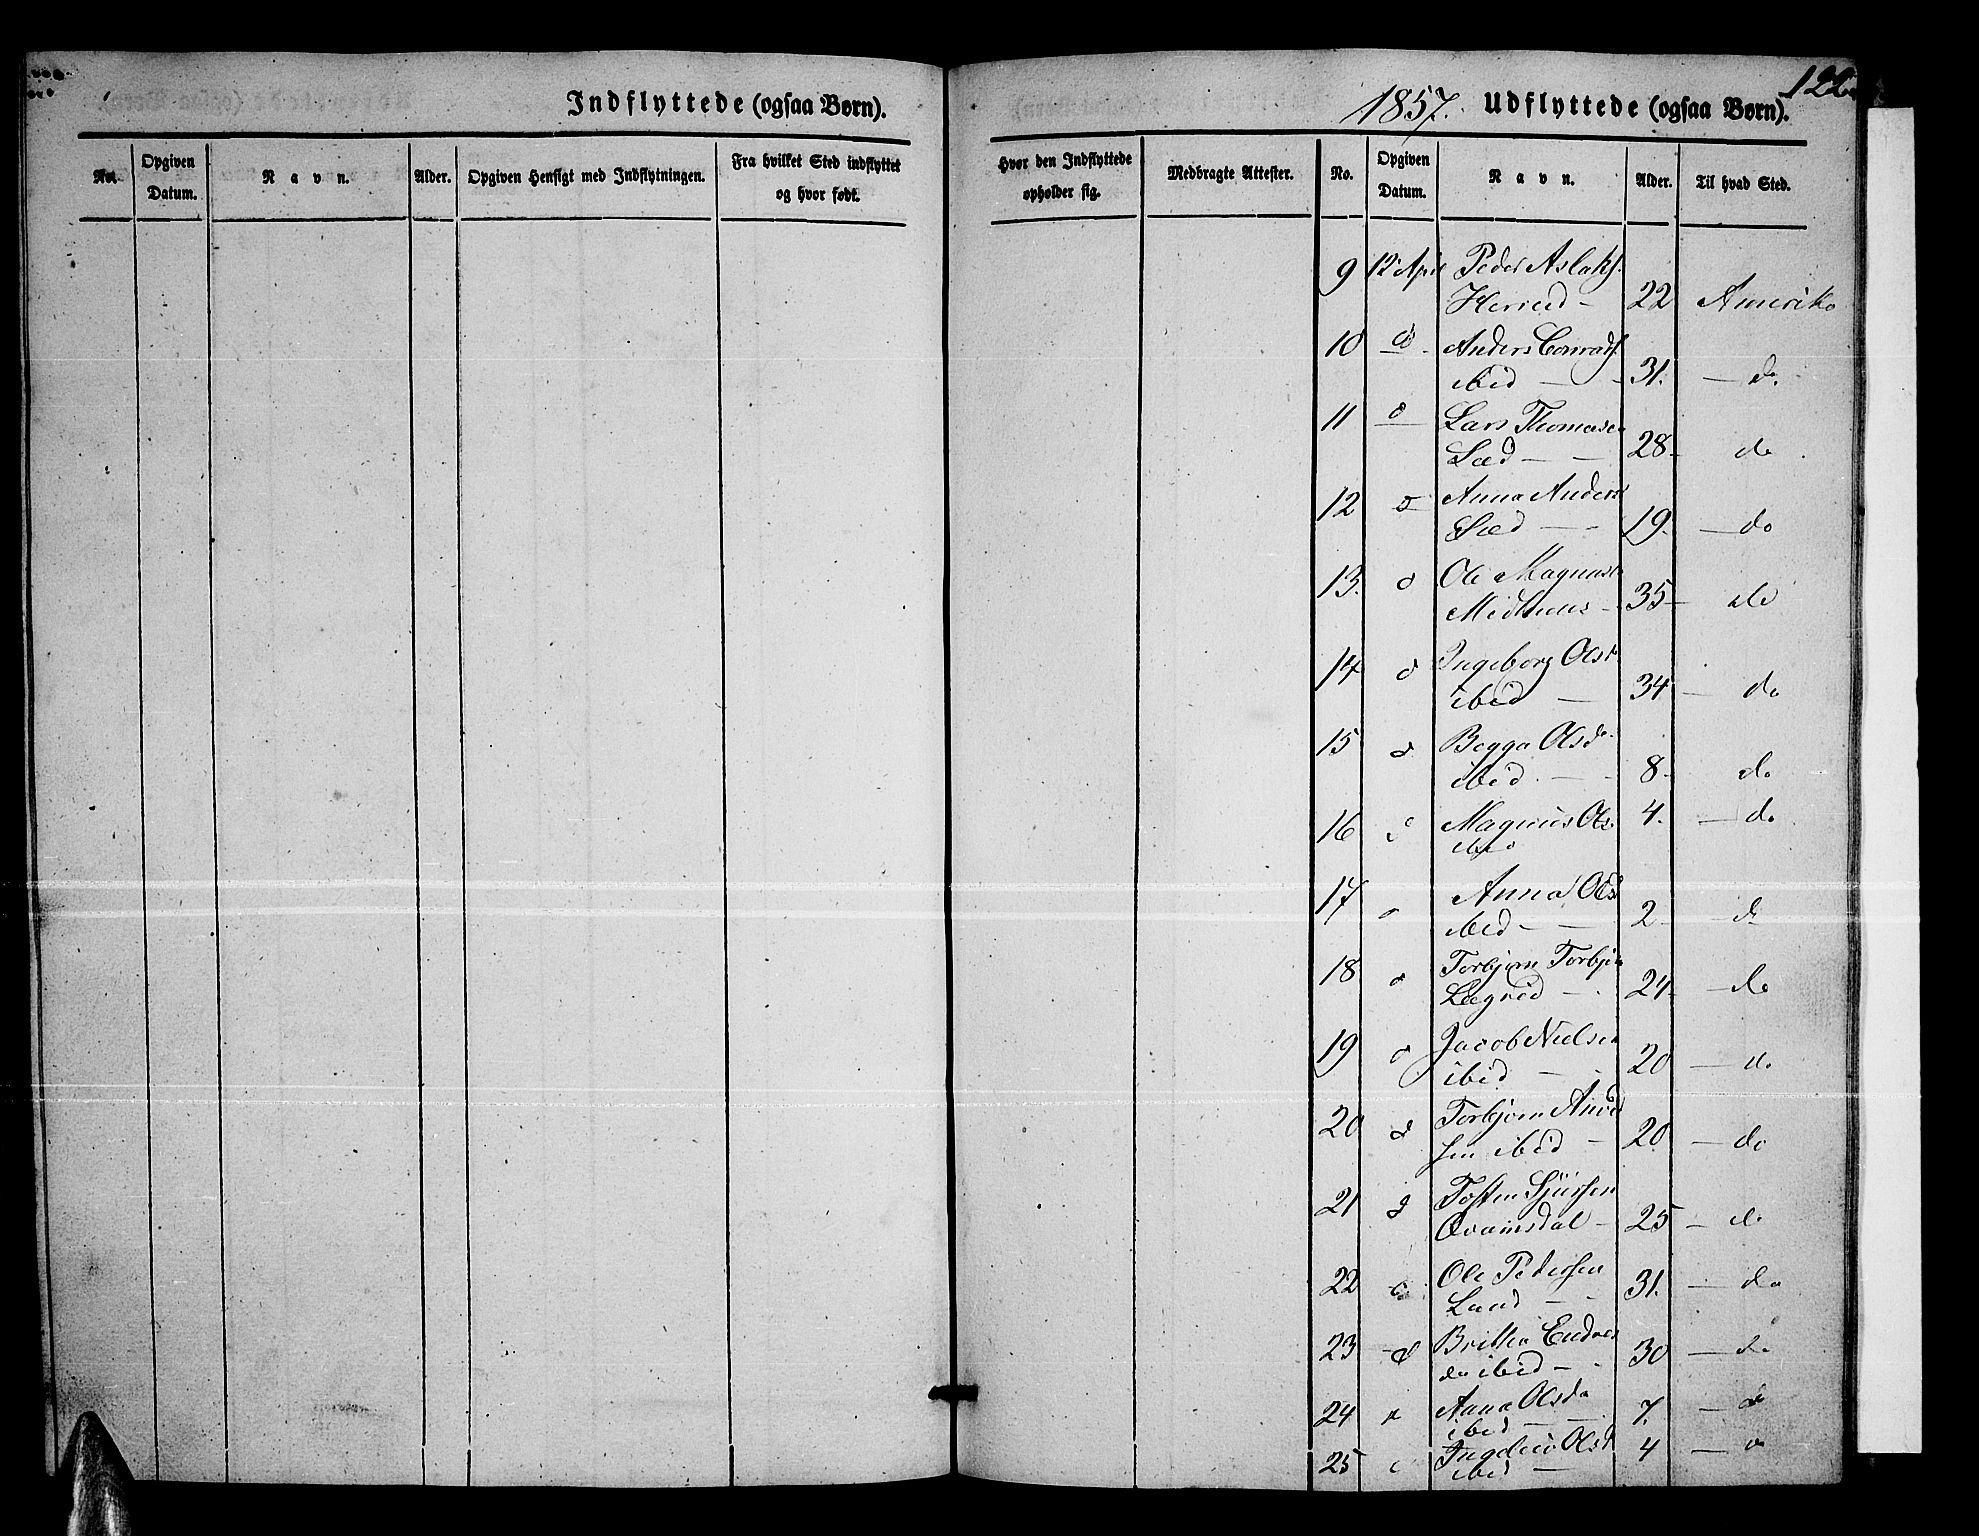 Indflyttede (ogsaa Børn).
No.
Opgiven Datum.
Navn.
Alder.
Opgiven Hensigt med Indflytningen.
Fra hvilket Sted indflyttet og hvor født.
122
1857. Udflyttede (ogsaa Børn).
Hvor den Indflyttede opholder sig.
Medbragte Attester.
No.
Opgiven Datum.
Navn.
Alder.
Til hvad Sted.
9 12 April Peder Aslaks.
Herred - 22 Amerika
10 do Anders Conrads.
ibid - 31. - do
11 do Lars Thomasen
Sæd - 28 - do
12 do Anna Anders
Sæd - 19. - do
13. d Ole Magnus
Midtnæs - 35 - do
14 d Ingeborg Olsd
ibid - 34 - do
15 d Begga Olsd
ibid - 8 - do
16 d Magnus Ols 4. - do
ibid
17 d Anna Ols
ibid - 2 - do
18 d Torbjørn Torbjørn
Legreid - 24 - do
19 d Jacob Nielsen
ibid - 20 - do
20 d Torbjørn Amd
sen ibid - 20 - do
21 d Tosten Sjursen
Qvamsdal - 25 - do
22 d Ole Pedersen
Lund - 31. - do
23 d Britha Endres
da ibid - 30 - do
24 d Anna Olsda
ibid - 7. - do
25 d Olsd 4 - do
ibid -